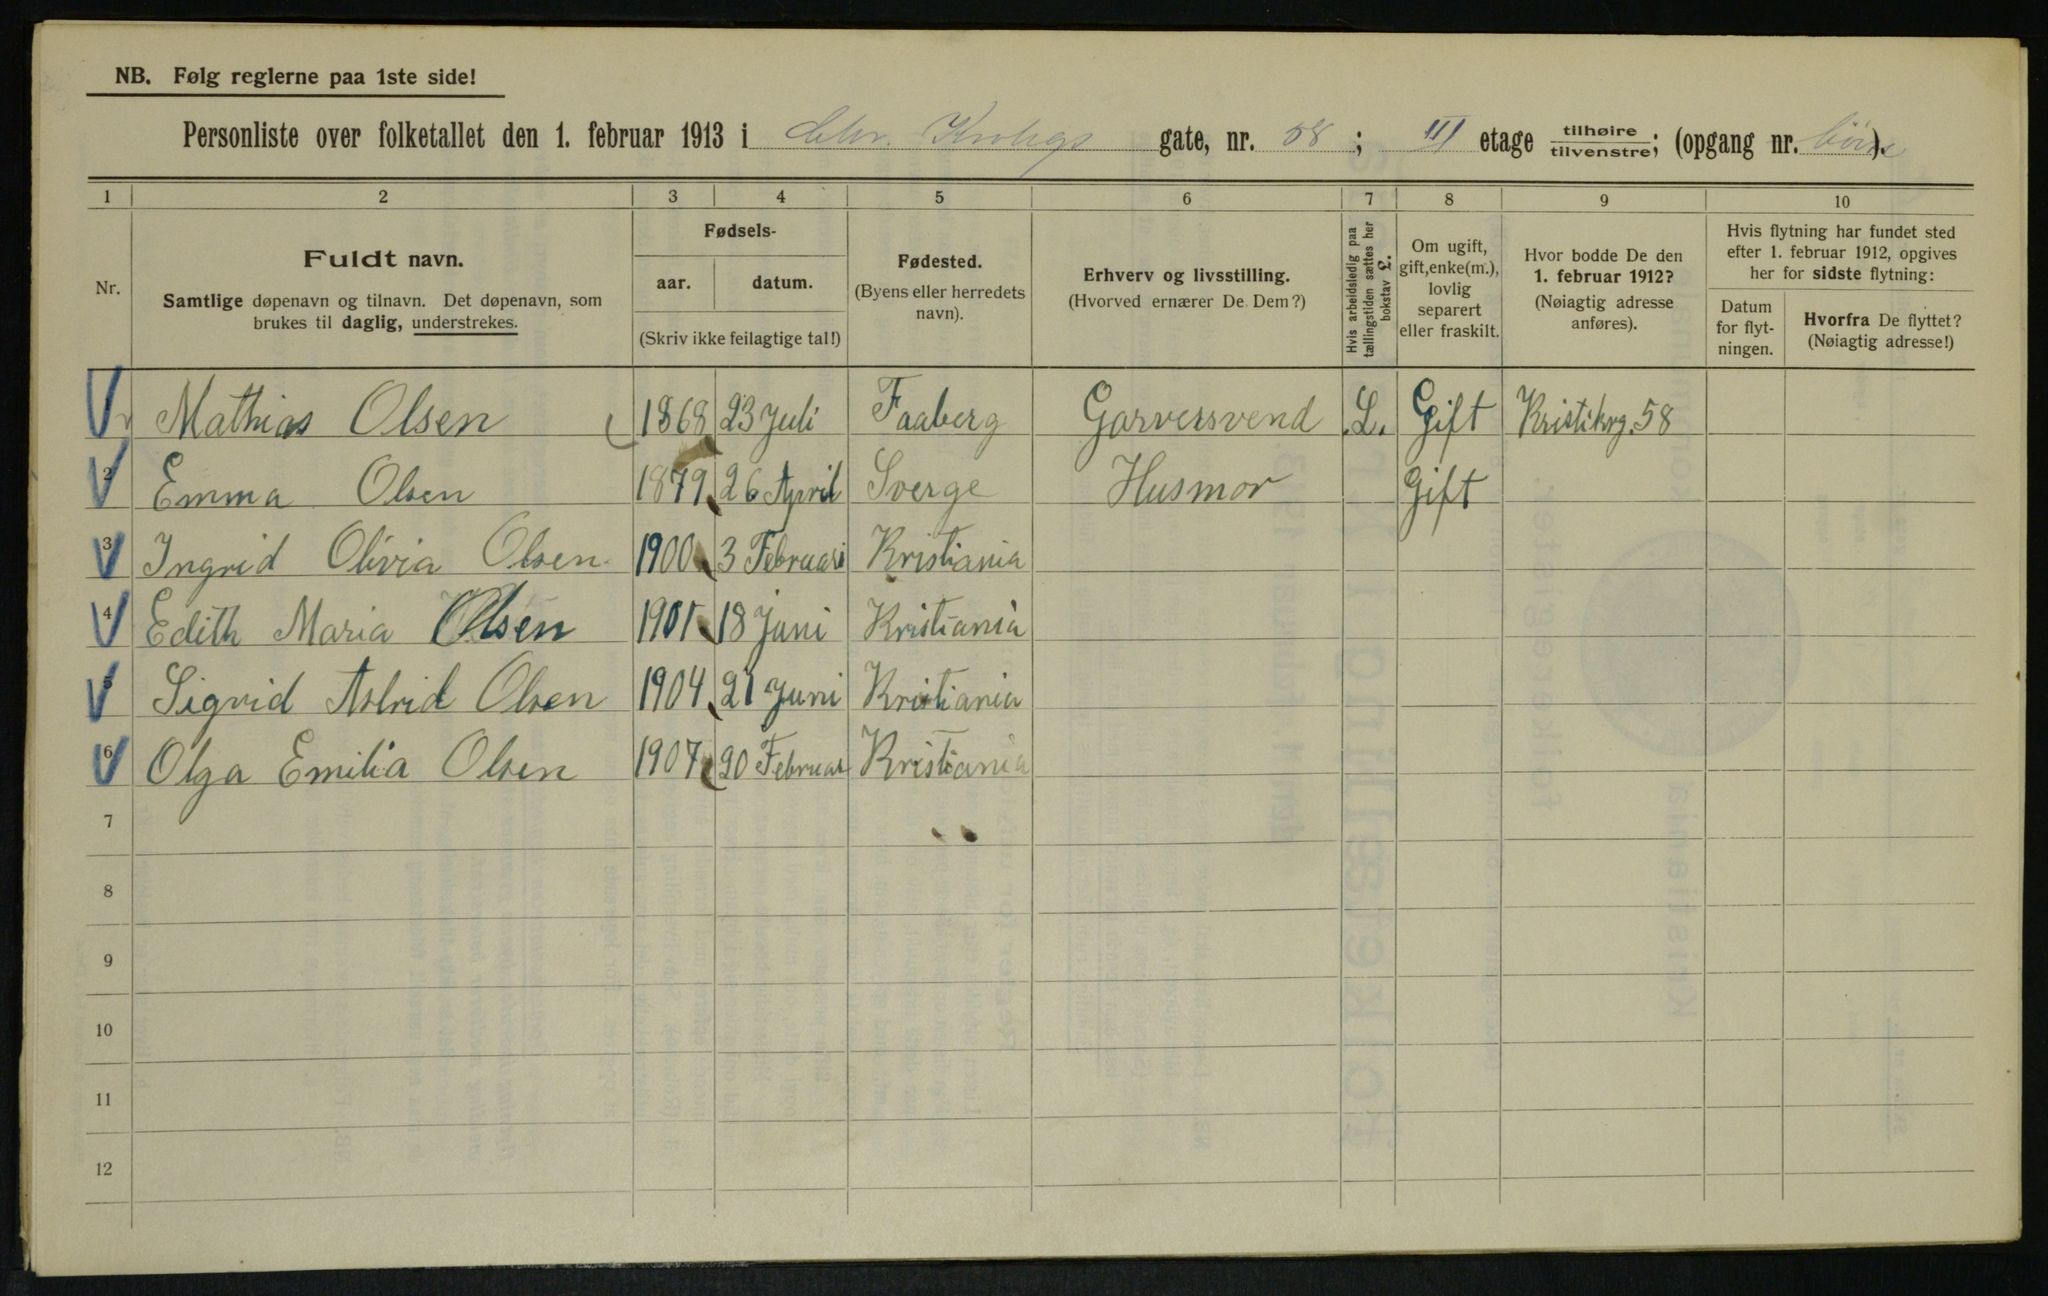 NB. Følg reglerne paa 1ste side!
Personliste over folketallet den 1. februar 1913 i Chr. Krohgs gate, nr. 58 ; III etage tilhøire tilvenstre; (opgang nr. ).
1 2 3 4 5 6 7 8 9 10
Nr.
Fuldt navn.
Samtlige døpenavn og tilnavn. Det døpenavn, som
brukes til daglig, understrekes.
Fødsels-
aar. datum.
(Skriv ikke feilagtige tal!)
Fødested.
(Byens eller herredets
navn).
Erhverv og livsstilling.
(Hvorved ernærer De Dem?)
Hvis arbeidsledig paa
tællingstiden sættes her
bokstav L.
Om ugift,
gift, enke(m.),
lovlig
separert
eller fraskilt.
Hvor bodde De den
1. februar 1912?
(Nøiagtig adresse
anføres).
Hvis flytning har fundet sted
efter 1. februar 1912, opgives
her for sidste flytning:
Datum
for flyt-
ningen.
Hvorfra De flyttet?
(Nøiagtig adresse!)
1 Mathias Olsen 1868 23 Juli Faaberg Garversvend .L. Gift Kristikrg. 58
2 Emma Olsen 1879 26 April Sverge Husmor Gift
3 Ingrid Olivia Olsen 1900 3 Februari Kristiania
4 Edith Maria Olsen 1901 18 Juni Kristiania
5 Sigrid Astrid Olsen 1904 21 Juni Kristiania
6 Olga Emilia Olsen 1907 20 Februar Kristiania
7
8
9
10
11
12